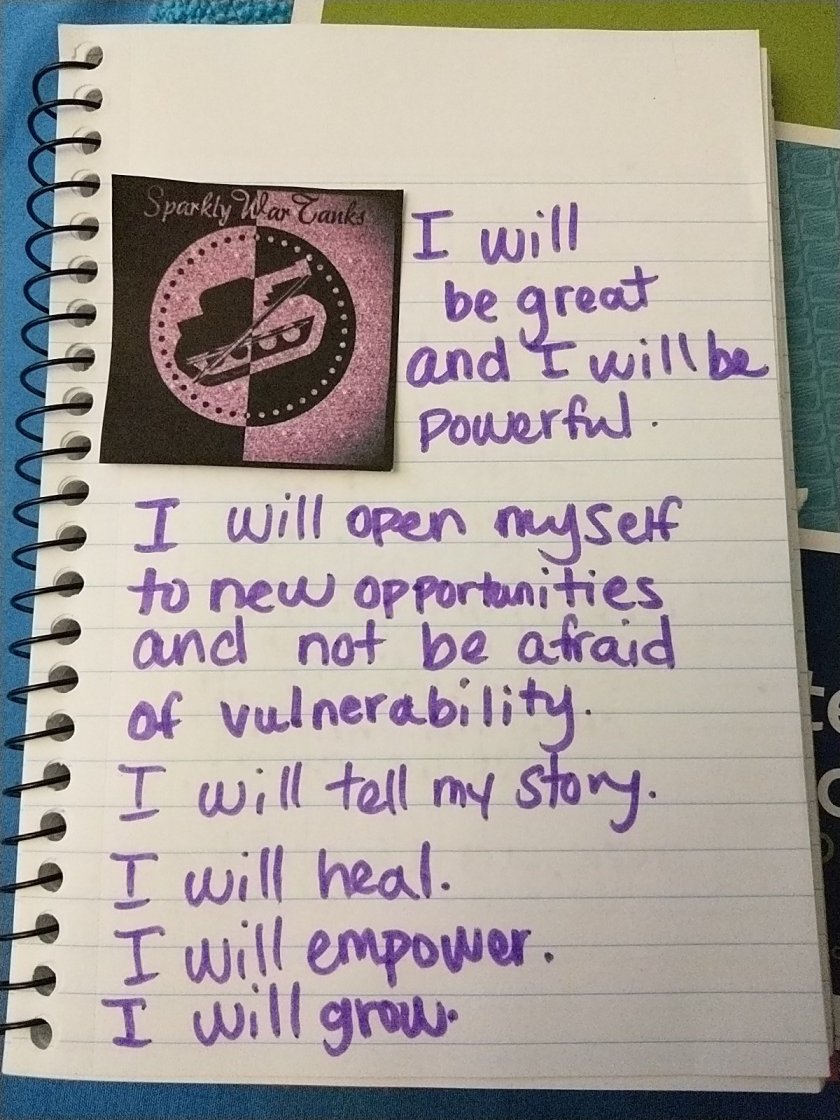 Sparkly War Tanks
I will
be great
and I will be
powerful.
I will open myself
to new opportunities
and not be afraid
of vulnerability.
I will tell my story.
I will heal.
I will empower.
I will grow.
te